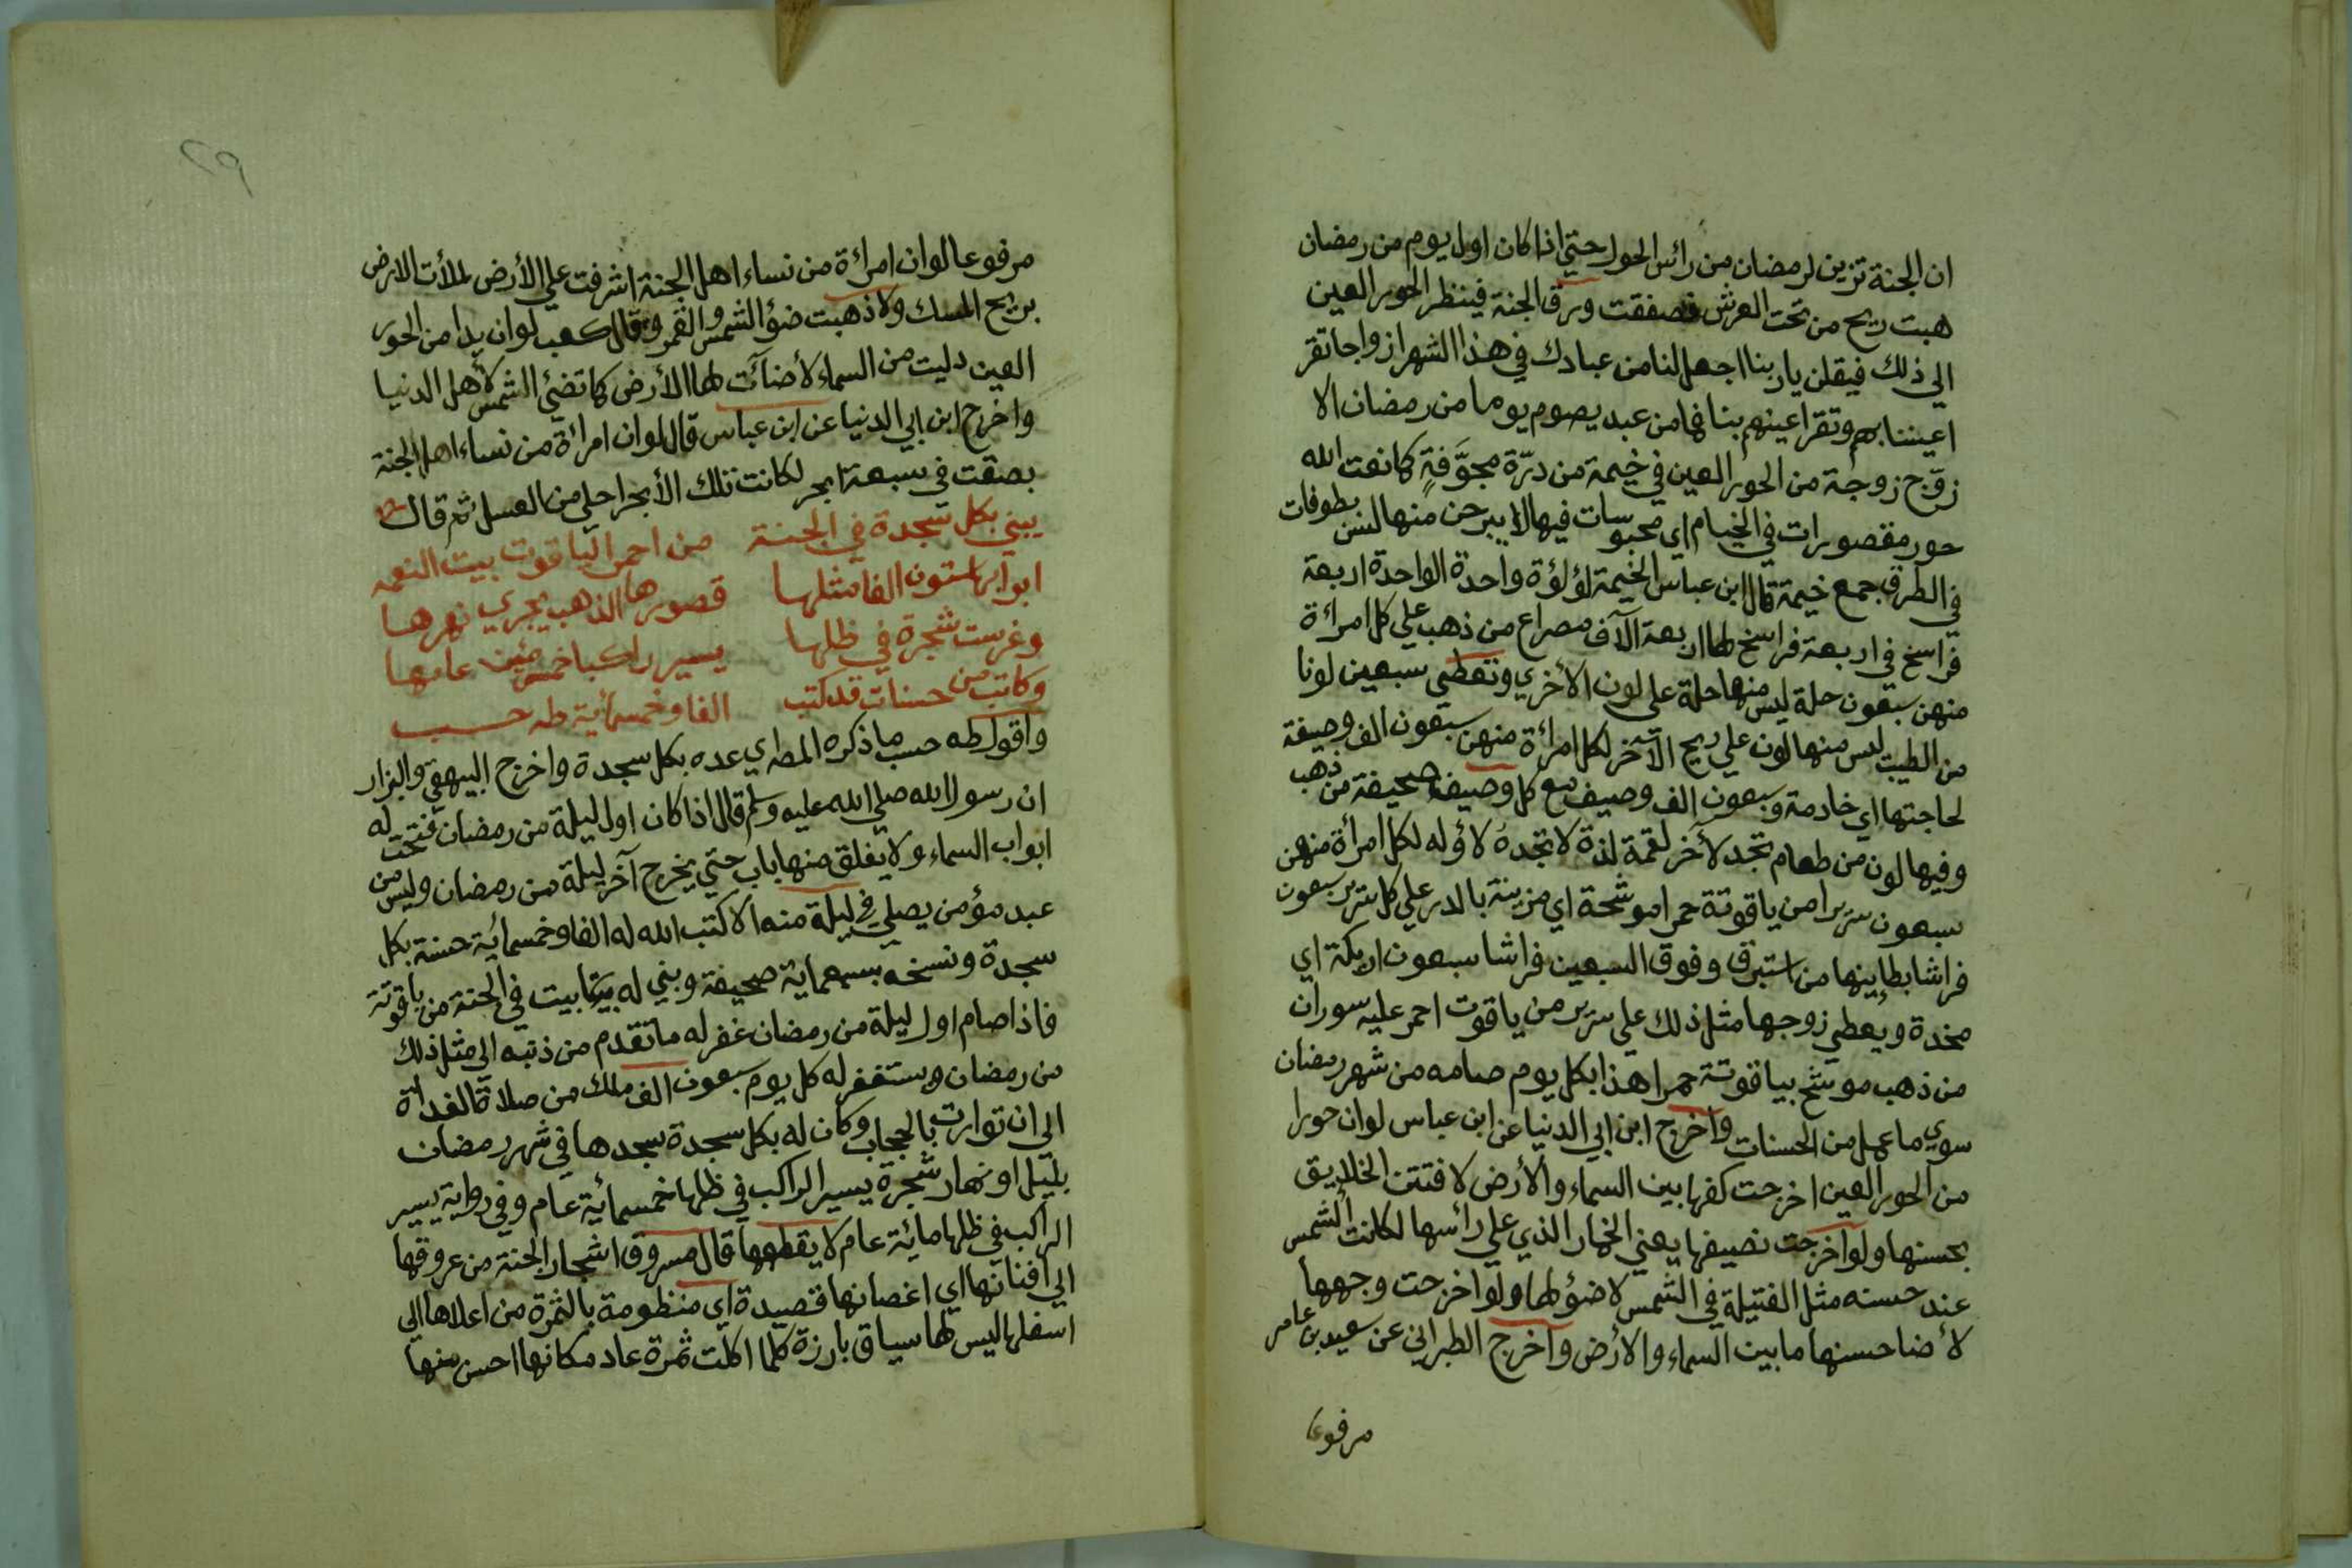 ان الجنة تزين لرمضان من رائس الحول حتي اذا كان اول يوم من رمضان
هبت ريح من تحت العرش فصفقت ورق الجنة فينظر الحور العين
الي ذلك فيقلن يا ربنا اجعل لنا من عبادك في هذا الشهر ازواجا تقر
اعيننا بهم وتقر اعينهم بنا فما من عبد يصوم يوما من رمضان الا
زوّج زوجة من الحور العين في خيمة من درّة مجوَّفةٍ كما نعت الله
حور مقصورات في الخيام اي محبوسات فيها لا يبرحن منها لسن بطوفات
في الطرق جمع خيمة قال ابن عباس الخيمة لؤلؤة واحدة الواحدة اربعة
فراسخ في اربعة فراسخ لها اربعة آلاف مصراع من ذهب علي كل امرأة
منهن سبعون حلة ليس منها حلة علي لون الأخري وتعطي سبعين لونا
من الطيب ليس منها لون علي ريح الآخر لكل امرأة منهن سبعون الف وصيفة
لحاجتها اي خادمة وسبعون الف وصيف مع كل وصيفة صحيفة من ذهب
وفيها لون من طعام تجد لآخر لقمة لذة لا تجده لأوله لكل امرأة منهن
سبعون سريرا من ياقوتة حمرا موشحة اي مزينة بالدر علي كل سرير سبعون
فراشا بطاينها من استبرق وفوق السبعين فراشا سبعون اريكة اي
مخدة ويعطي زوجها مثل ذلك علي سرير من ياقوت احمر عليه سوران
من ذهب موشح بياقوتة حمرا هذا بكل يوم صامه من شهر رمضان
سوي ما عمل من الحسنات واخرج ابن ابي الدنيا عن ابن عباس لو ان حورا
من الحور العين اخرجت كفها بين السماء والأرض لافتتن الخلايق
بحسنها ولو اخرجت نصيفها يعني الخمار الذي علي رائسها لكانت الشمس
عند حسنه مثل الفتيلة في الشمس لا ضؤ لها ولو اخرجت وجهها
لأضا حسنها ما بين السماء والأرض واخرج الطبراني عن سعيد بن عامر
مرفوعا
٢٩
مرفوعا لو ان امرأة من نساء اهل الجنة اشرفت علي الأرض لملأت الارض
بريح المسك ولاذهبت ضؤ الشمس والقمر وقال كعب لو ان يدا من الحور
العين دليت من السماء لأضآئت لها الأرض كما تضئ الشمس لأهل الدنيا
واخرج ابن ابي الدنيا عن ابن عباس قال لو ان امرأة من نساء اهل الجنة
بصقت في سبعة ابحر لكانت تلك الأبحر احلي من العسل ثم قال
يبني بكل سجدة في الجنة من احمر الياقوت بيت النعمه
ابوابها ستون الفا مثلها قصورها الذهب يجري نهرها
وغرست شجرة في ظلها يسير راكبا خمس مئين عامها
وكاتب من حسنات قد كتب الفا وخمسمائية طه حسب
واقول طه حسب ما ذكره المصراي عده بكل سجدة واخرج البيهقي والبزار
ان رسول الله صلي الله عليه وسلم قال اذا كان اول ليلة من رمضان فتحت له
ابواب السماء ولا يغلق منها باب حتي يخرج آخر ليلة من رمضان وليس من
عبد مؤمن يصلي في ليلة منه الا كتب الله له الفا وخمسمائية حسنة بكل
سجدة ونسخه بسبعماية صحيفة وبني له بيتا بيت في الجنة من ياقوتة
فاذا صام اول ليلة من رمضان غفر له ما تقدم من ذنبه الي مثل ذلك
من رمضان ويستغفر له كل يوم سبعون الف ملك من صلاة الغداة
الي ان توارت بالحجاب وكان له بكل سجدة سجدها في شهر رمضان
بليل او نهار شجرة يسير الراكب في ظلها خمسمائية عام وفي رواية يسير
الراكب في ظلها مائية عام لا يقطعها قال مسروق اشجار الجنة من عروقها
الي افنانها اي اغصانها قصيدة اي منظومة بالثمرة من اعلاها الي
اسفلها ليس لها سياق بارزة كلما اكلت ثمرة عاد مكانها احسن منها